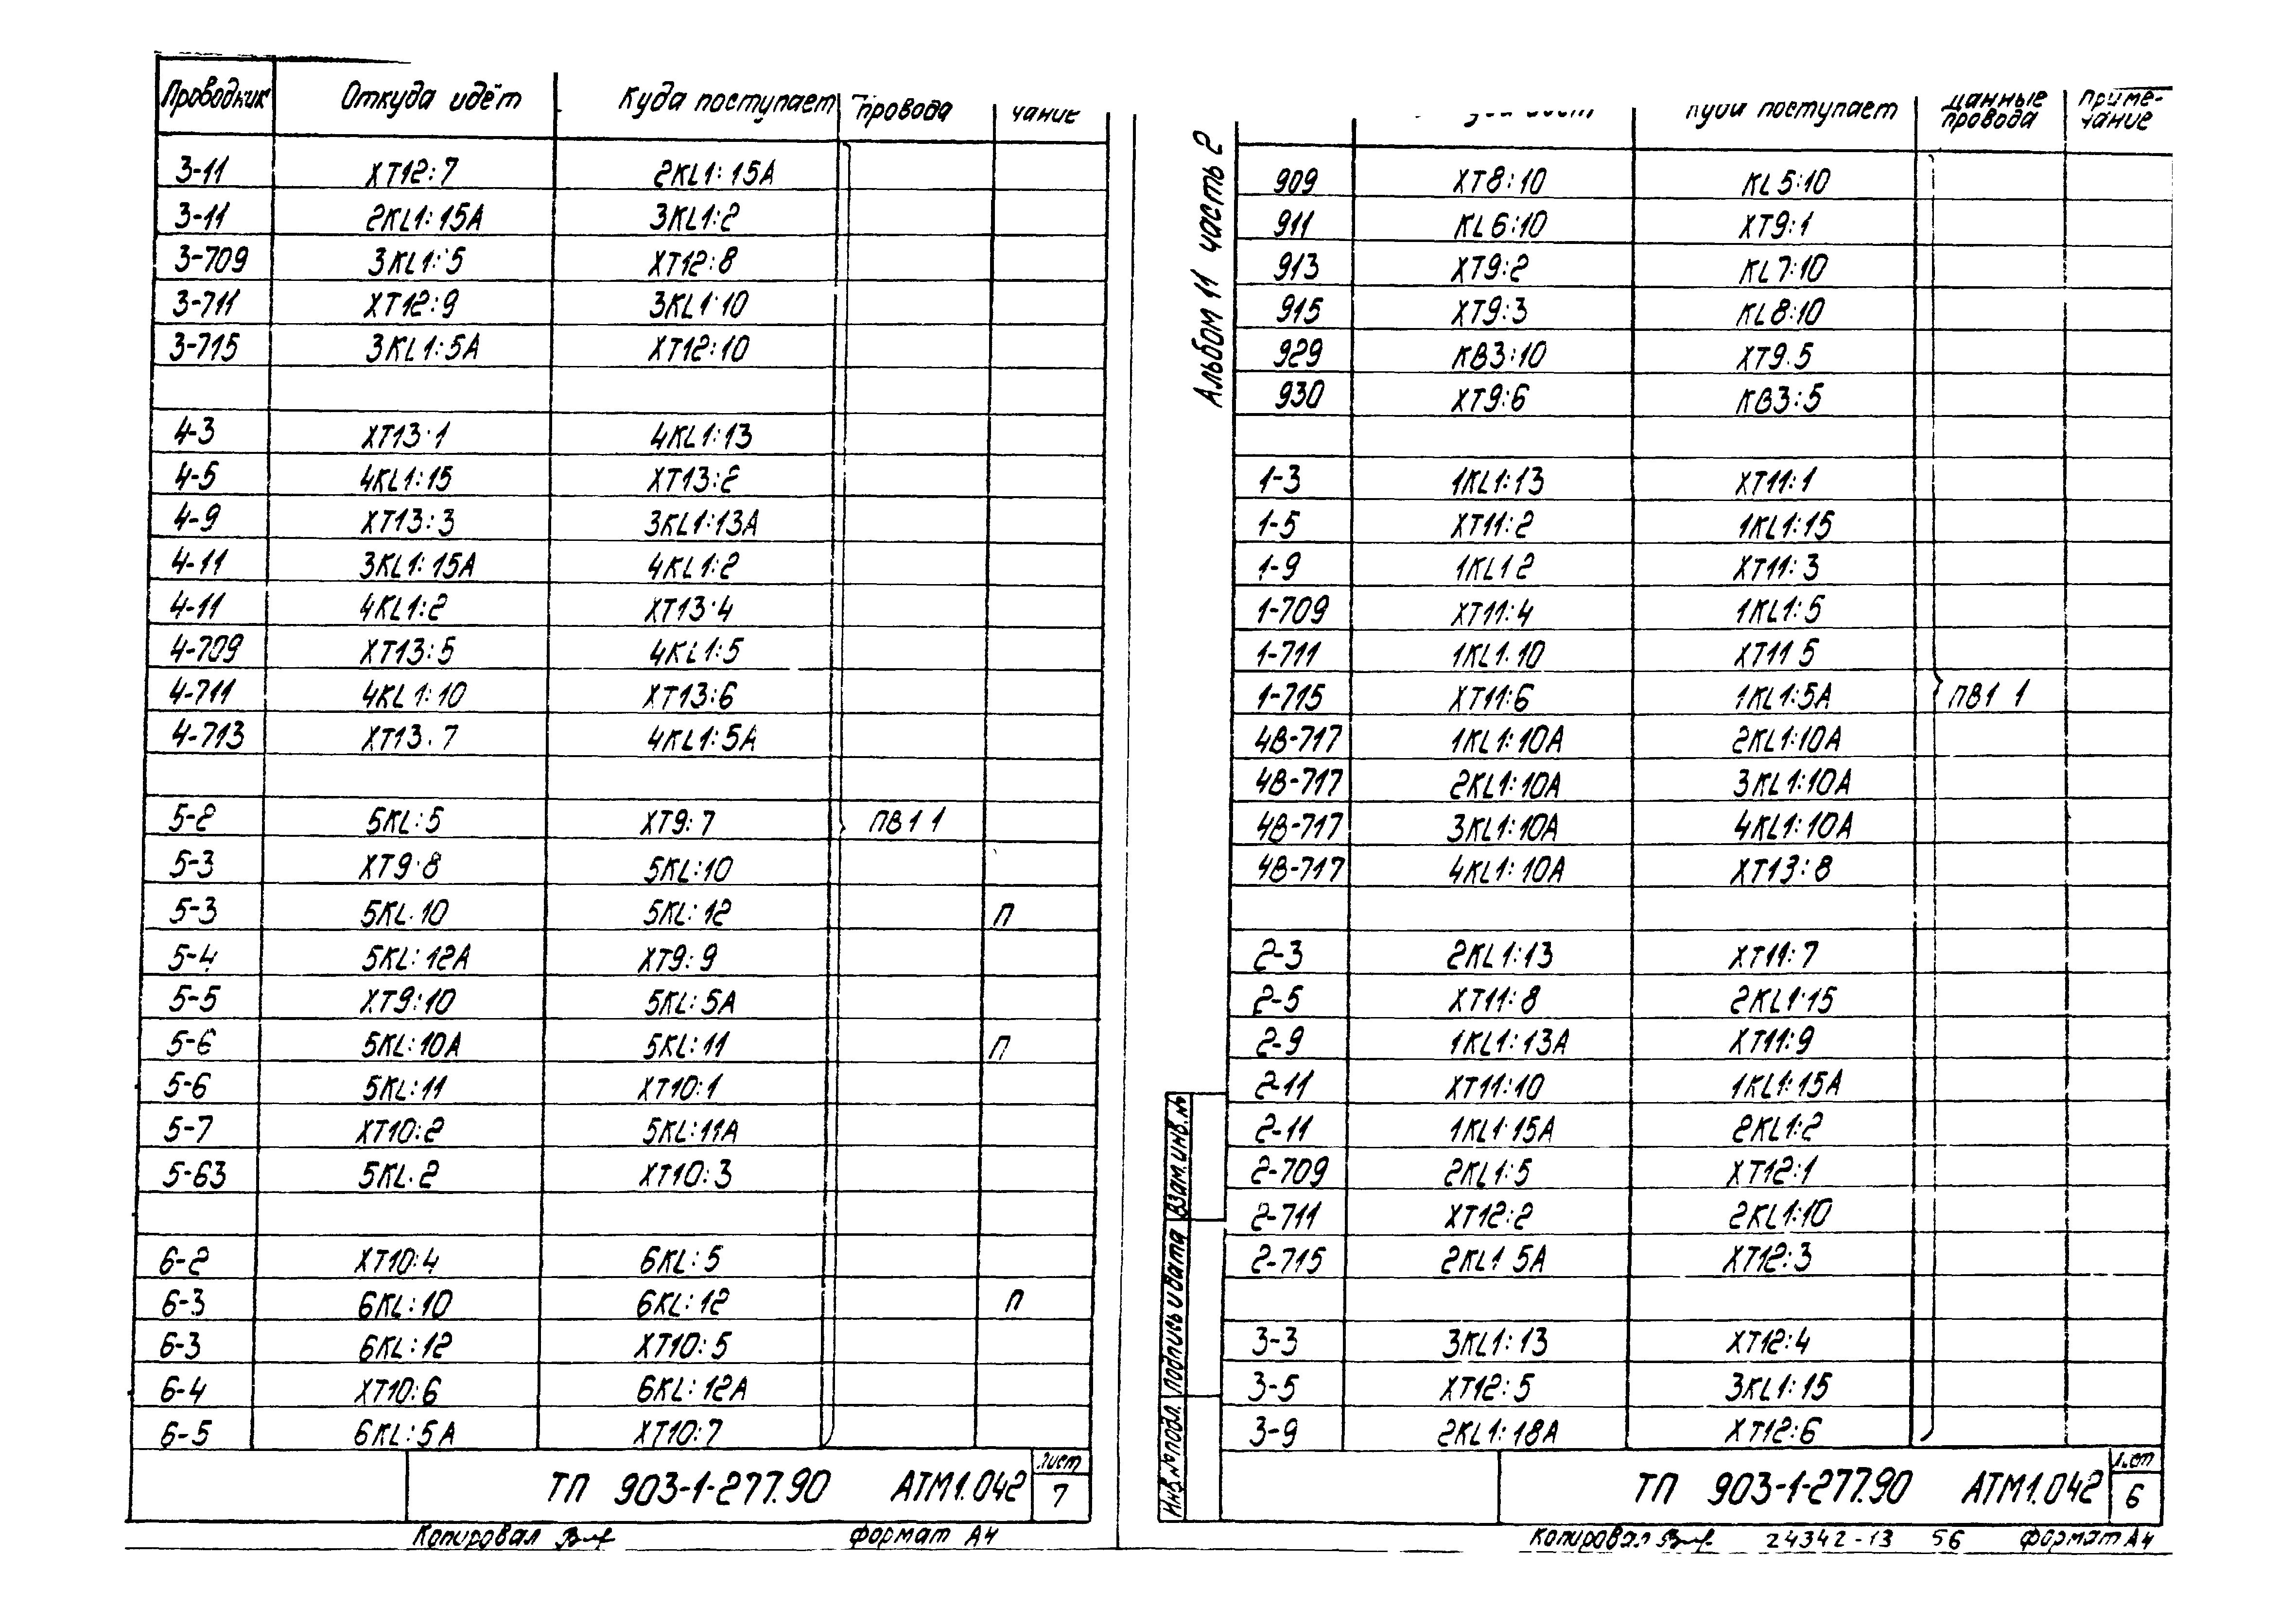 Проводник Откуда идёт Куда поступает провода чание
3-11 XT12:7 2KL1:15A
3-11 2KL1:15A 3KL1:2
3-709 3KL1:5 XT12:8
3-711 XT12:9 3KL1:10
3-715 3KL1:5A XT12:10
4-3 XT13:1 4KL1:13
4-5 4KL1:15 XT13:2
4-9 XT13:3 3KL1:13A
4-11 3KL1:15A 4KL1:2
4-11 4KL1:2 XT13:4
4-709 XT13:5 4KL1:5
4-711 4KL1:10 XT13:6
4-713 XT13.7 4KL1:5A
5-2 5KL:5 XT9:7 ПВ1 1
5-3 XT9:8 5KL:10
5-3 5KL.10 5KL:12 П
5-4 5KL:12A XT9:9
5-5 XT9:10 5KL:5A
5-6 5KL:10A 5KL:11 П
5-6 5KL:11 XT10:1
5-7 XT10:2 5KL:11A
5-63 5KL.2 XT10:3
6-2 XT10:4 6KL:5
6-3 6KL:10 6KL:12 П
6-3 6KL:12 XT10:5
6-4 XT10:6 6KL:12A
6-5 6KL:5A XT10:7
ТП 903-1-277.90 АТМ1.042
Лист
7
Копировал формат А4
Альбом 11 часть 2
Куда поступает Данные провода Приме-чание
909 XT8:10 KL5:10
911 KL6:10 XT9:1
913 XT9:2 KL7:10
915 XT9:3 KL8:10
929 KB3:10 XT9.5
930 XT9:6 KB3:5
1-3 1KL1:13 XT11:1
1-5 XT11:2 1KL1:15
1-9 1KL1 2 XT11:3
1-709 XT11:4 1KL1:5
1-711 1KL1.10 XT11 5
1-715 XT11:6 1KL1:5A ПВ1 1
4В-717 1KL1:10A 2KL1:10A
4В-717 2KL1:10A 3KL1:10A
4В-717 3KL1:10A 4KL1:10A
4В-717 4KL1:10A XT13:8
2-3 2KL1:13 XT11:7
2-5 XT11:8 2KL1:15
2-9 1KL1:13A XT11:9
2-11 XT11:10 1KL1:15A
2-11 1KL1:15A 2KL1:2
2-709 2KL1:5 XT12:1
2-711 XT12:2 2KL1:10
2-715 2KL1 5A XT12:3
3-3 3KL1:13 XT12:4
3-5 XT12:5 3KL1:15
3-9 2KL1:18A XT12:6
Инв.№ подл. Подпись и дата Взам.инв.№
ТП 903-1-277.90 АТМ1.042
Лист
6
Копировал 24342-13 56 формат А4